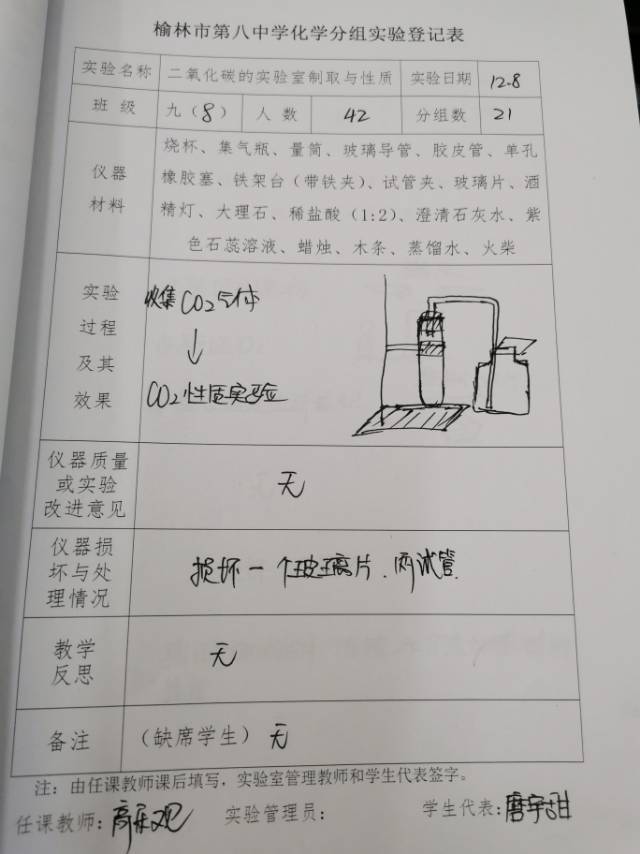 榆林市第八中学化学分组实验登记表
实验名称 二氧化碳的实验室制取与性质 实验日期 12.8
班 级 九（8） 人 数 42 分组数 21
仪器材料
烧杯、集气瓶、量筒、玻璃导管、胶皮管、单孔
橡胶塞、铁架台（带铁夹）、试管夹、玻璃片、酒
精灯、大理石、稀盐酸（1:2）、澄清石灰水、紫
色石蕊溶液、蜡烛、木条、蒸馏水、火柴
实验
过程
及其
效果
收集CO2气体
↓
CO2性质实验
仪器质量
或实验
改进意见
无
仪器损
坏与处
理情况
损坏一个玻璃片、两试管
教学
反思
无
备注 （缺席学生）无
注：由任课教师课后填写，实验室管理教师和学生代表签字。
任课教师： 实验管理员： 学生代表：唐宇甜